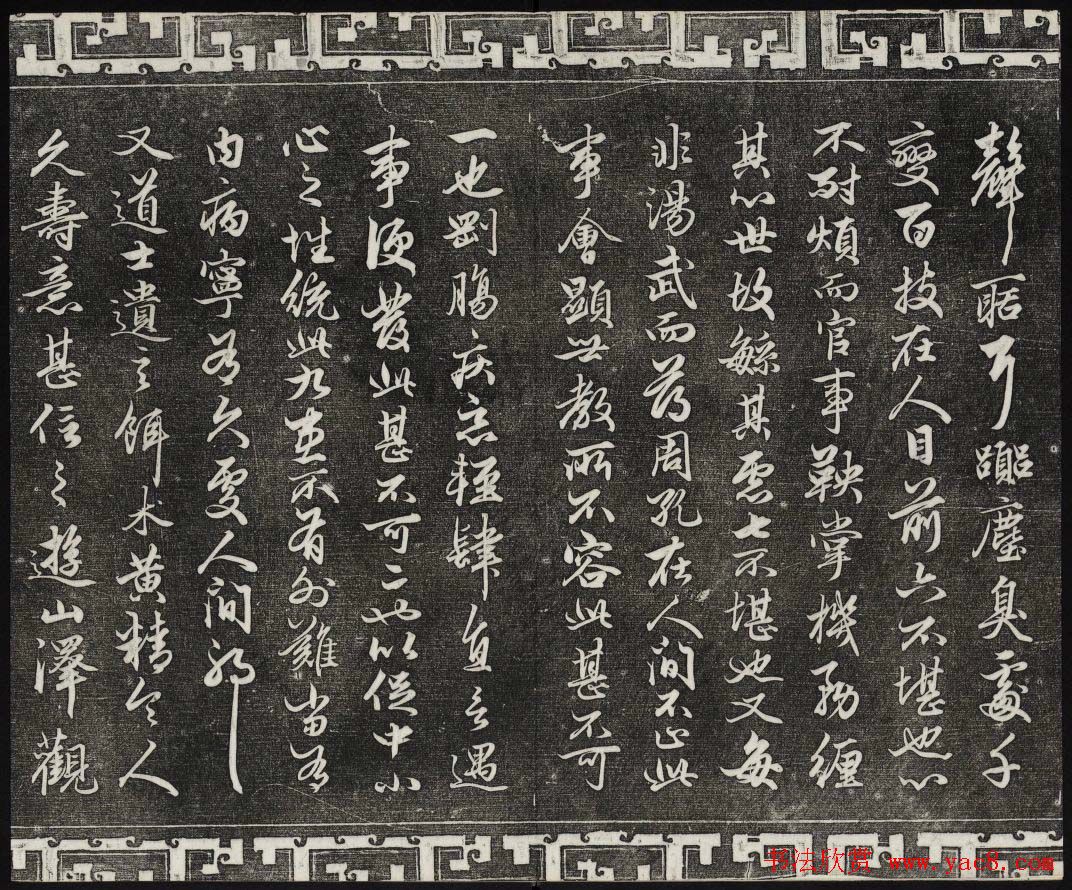 聲聒耳囂塵臭處千
變百技在人目前六不堪也心
不耐煩而官事鞅掌機務纏
其心世故緐其慮七不堪也又每
非湯武而薄周孔在人間不止此
事會顯世教所不容此甚不可
一也剛腸疾惡輕肆直言遇
事便發此甚不可二也以促中小
心之性統此九患不有外難當有
內病寧有久處人間耶
又道士遺言餌术黃精令人
久壽意甚信之遊山澤觀
书法欣赏 www.yac8.com